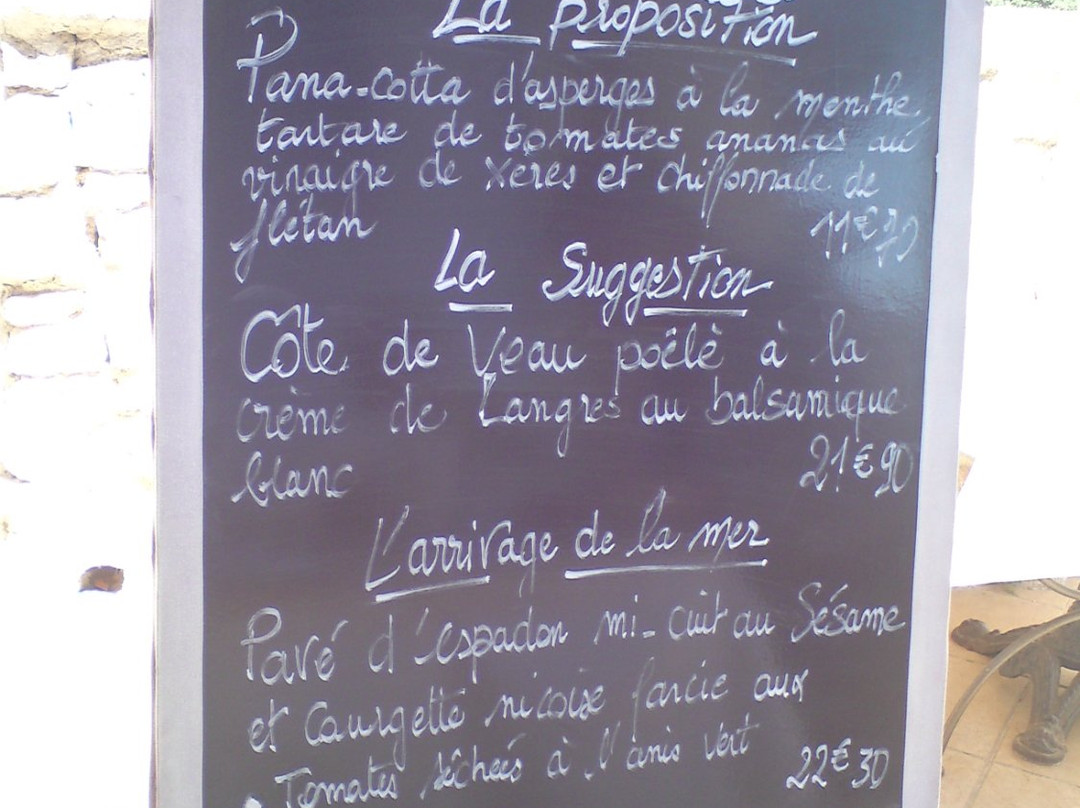 La proposition
Pana-cotta d'asperges à la menthe
tartare de tomates ananas au
vinaigre de xeres et chiffonnade de
flétan 11€70
La Suggestion
Côte de Veau poëlè à la
crème de Langres au balsamique
blanc 21€90
L'arrivage de la mer
Pavé d'espadon mi-cuit au Sésame
et Courgette niçoise farcie aux
Tomates séchées à l'anis vert 22€30